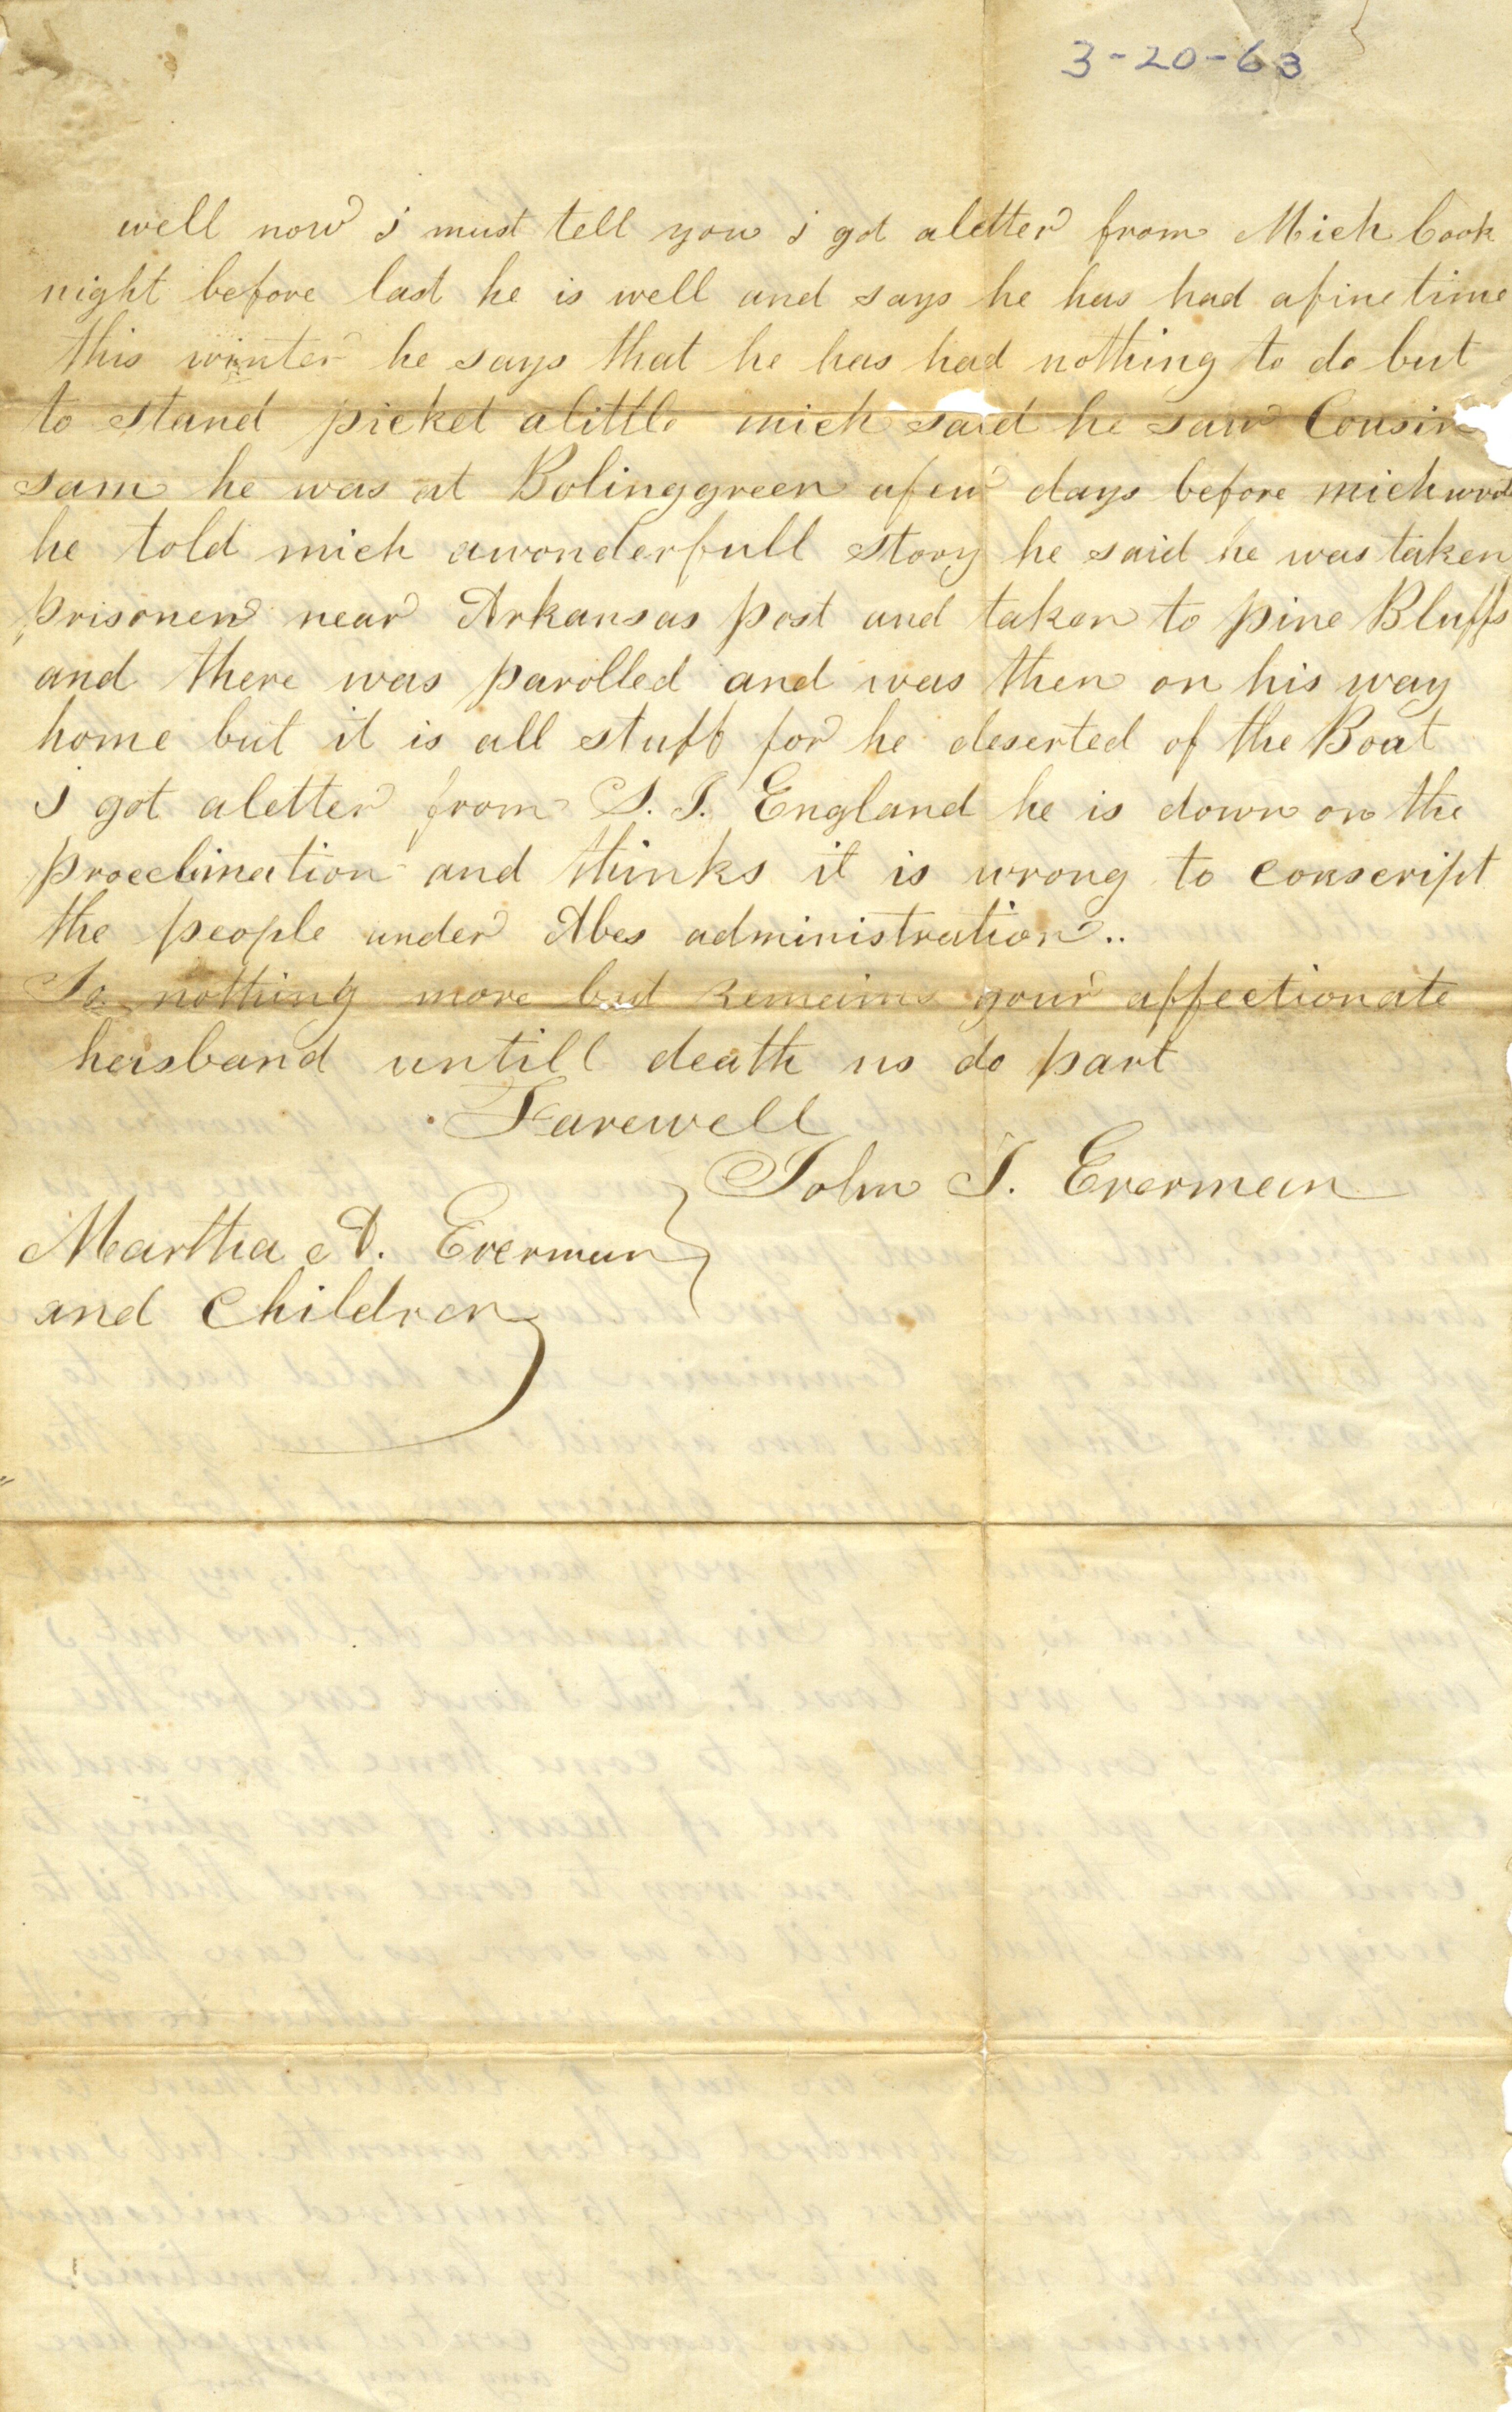 3-20-63
well now i must tell you i got aletter from Mich Cook
night before last he is well and says he has had afine time
this winter he says that he has had nothing to do but
to stand picket alittle mich said he saw Cousin
sam he was at Bolinggreen afew days before mich wrote
he told mich awonderfull story he said he was taken
prisoner near Arkansas post and taken to pine Bluffs
and there was parolled and was then on his way
home but it is all stuff for he deserted of the Boat
i got aletter from S. J. England he is down on the
procclimation and thinks it is wrong to conscript
the people under Abes administration..
So nothing more but remains your affectionate
husband untill death us do part
Farewell
John J. Everman
Martha A. Everman
and Children